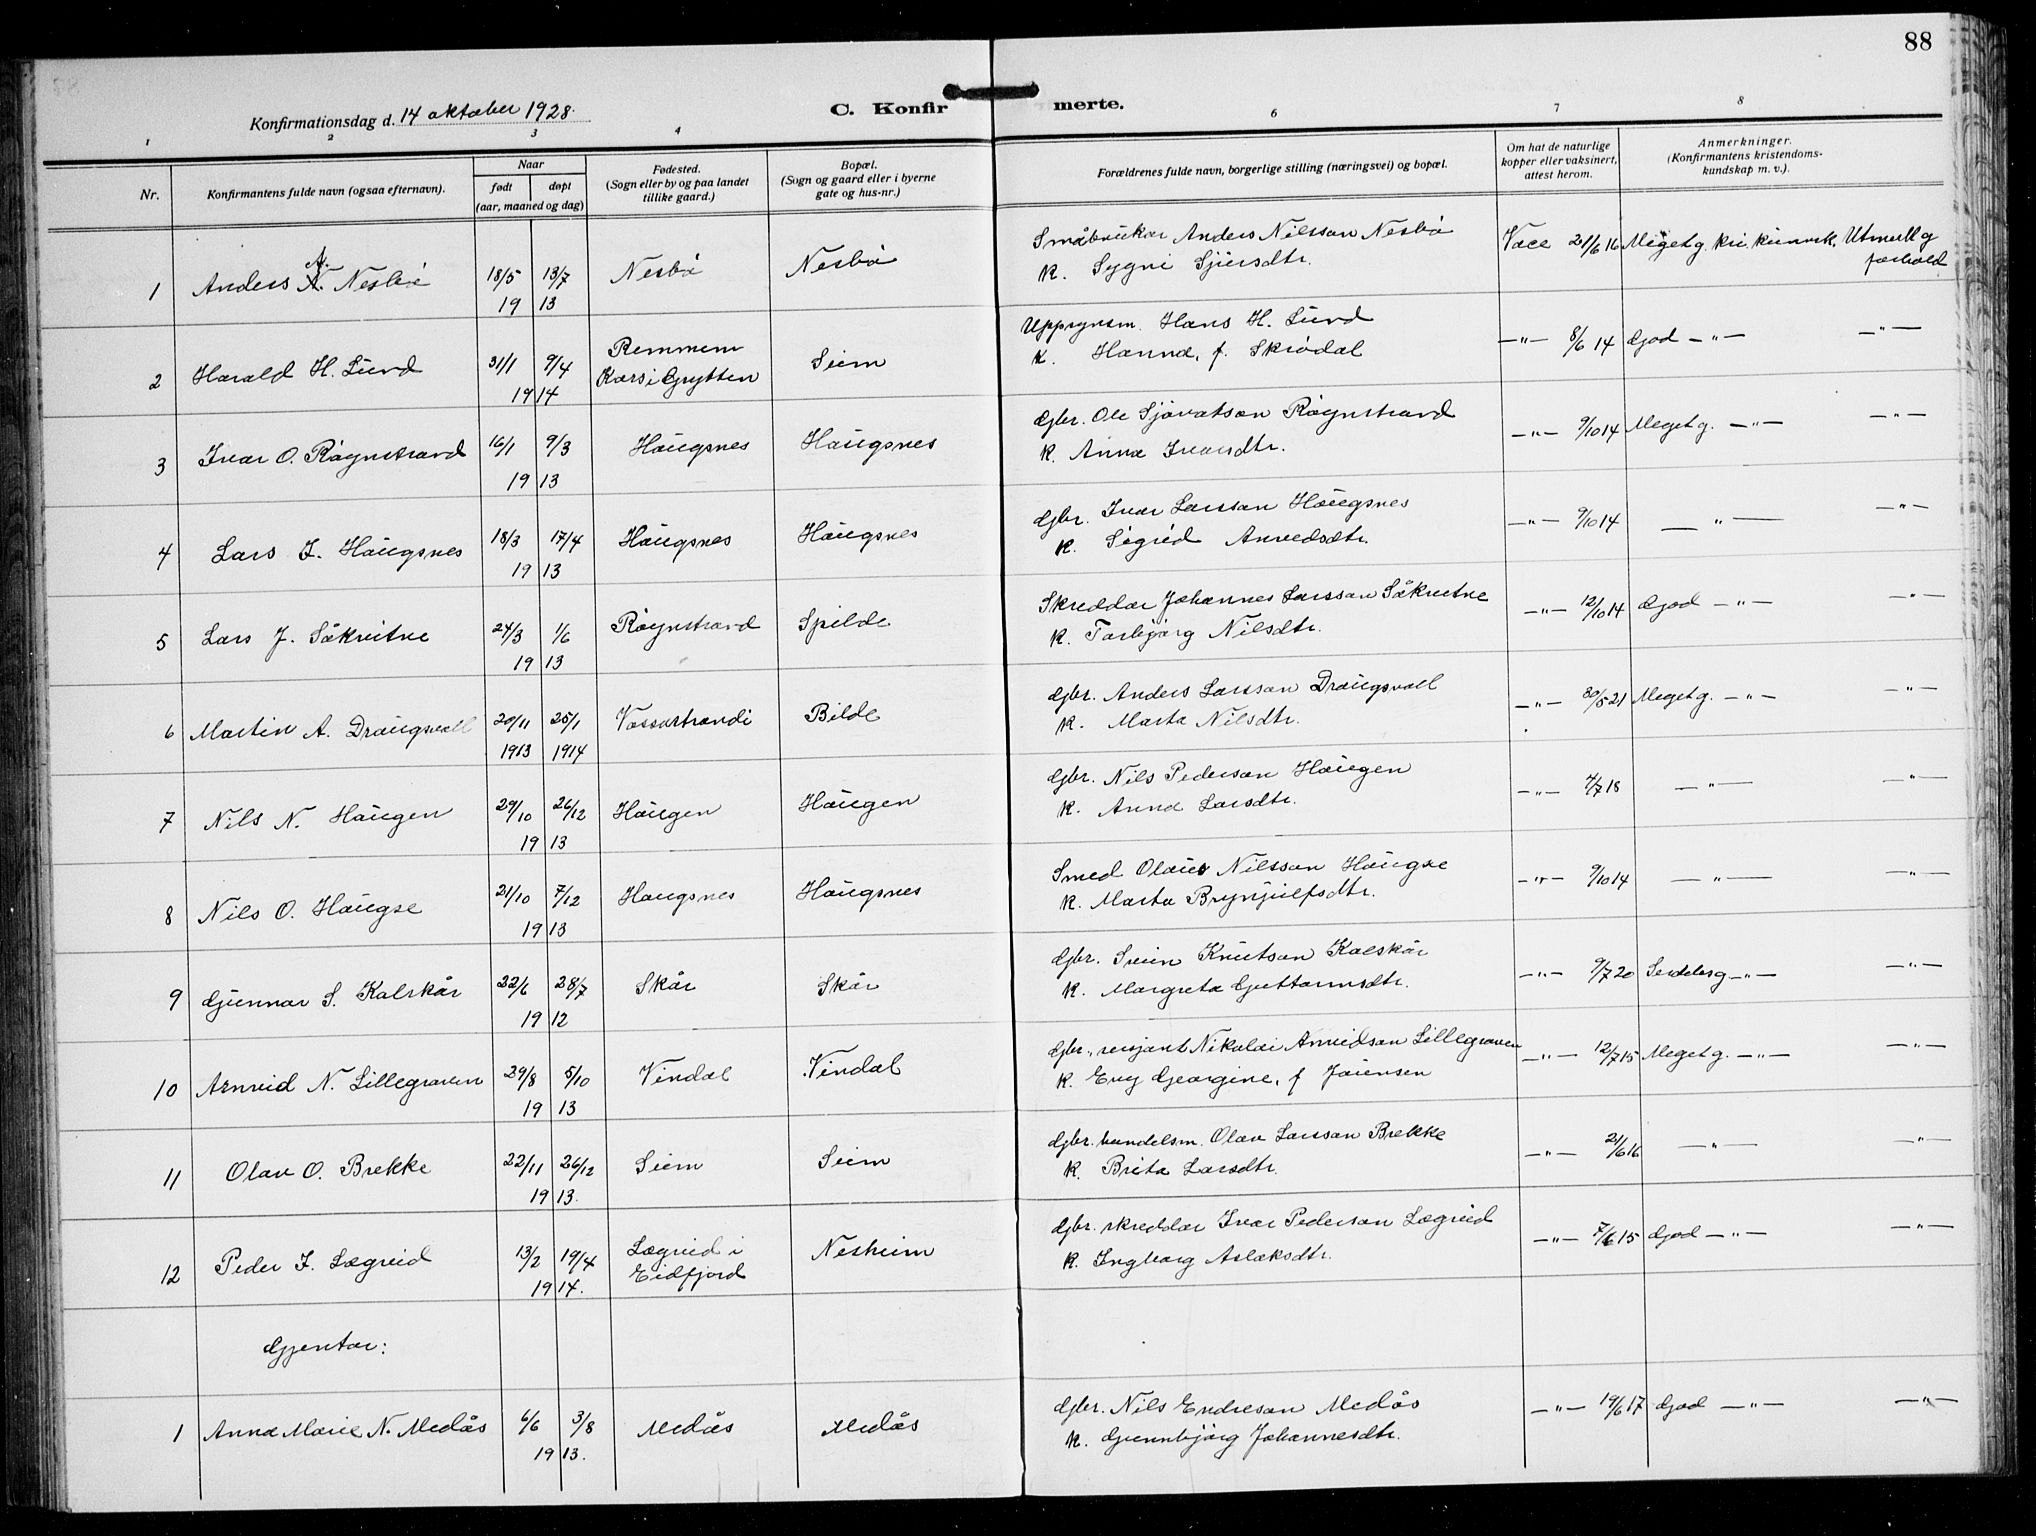 88
Konfirmationsdag d. 14 oktober 1928.
C. Konfirmerte.
1 2 3 4 6 7 8
Nr.
Konfirmantens fulde navn (ogsaa efternavn).
Naar
født
døpt
(aar, maaned og dag)
Fødested.
(Sogn eller by og paa landet
tillike gaard.)
Bopæl.
(Sogn og gaard eller i byerne
gate og hus-nr.)
Forældrenes fulde navn, borgerlige stilling (næringsvei) og bopæl.
Om hat de naturlige
kopper eller vaksinert,
attest herom.
Anmerkninger.
(Konfirmantens kristendoms-
kundskap m. v.).
1 Anders A. Nesbø 18/5 13/7 1913 Nesbø Nesbø
Småbrukar Anders Nilsson Nesbø
k. Sygni Sjursdtr. Vacc 21/6 16 Meget g. kri. kunnsk. Utmerk g
forhold
2 Harald H. Lund 31/1 9/4 1914 Remmem
Kors i Grytten Seim
Uppsynsm. Hans H. Lund
k. Hanna, f. Skrødal —"— 8/6 14 God —"— —"—
3 Ivar O. Røynstrand 16/1 9/3 1913 Haugsnes Haugsnes
Gbr. Ole Sjovatson Røynstrand
k. Anna Ivarsdtr. —"— 9/10 14 Meget g. —"— —"—
4 Lars I. Haugsnes 18/3 17/4 1913 Haugsnes Haugsnes
Gbr. Ivar Larsson Haugsnes
k. Sigrid Anvedsdtr. —"— 9/10 14 —"— —"—
5 Lars J. Såkvitne 24/3 1/6 1913 Røynstrand Spilde
Skreddar Johannes Larsson Såkvitne
k. Torbjørg Nilsdtr. —"— 12/10 14 God —"— —"—
6 Martin A. Draugsvoll 20/11 1913 25/1 1914 Vossastrandi Bilde
Gbr. Anders Larsson Draugsvoll
k. Marta Nilsdtr. —"— 30/5 21 Meget g. —"— —"—
7 Nils N. Haugen 29/10 26/12 1913 Haugen Haugen
Gbr. Nils Pederson Haugen
k. Anna Larsdtr. —"— 4/7 18 —"— —"—
8 Nils O. Haugse 21/10 7/12 1913 Haugsnes Haugsnes
Smed Olaus Nilsson Haugse
k. Marta Brynjulfsdtr. —"— 9/10 14 —"— —"—
9 Gunnar S. Kalskår 22/6 28/7 1912 Skår Skår
Gbr. Svein Knutson Kalskår
k. Margreta Guttormsdtr. —"— 9/7 20 Serdeles g —"— —"—
10 Arnvid N. Lillegraven 29/8 5/10 1913 Vindal Vindal
Gbr., sersjant Nikolai Anvidson Lillegraven
k. Eny Georgine, f Joiensen —"— 12/7 15 Meget g. —"— —"—
11 Olav O. Brekke 22/11 26/12 1913. Seim Seim
Gbr. handelsm. Olav Larsson Brekke
k. Brita Larsdtr. —"— 21/6 16 —"— —"—
12 Peder I. Lægreid 13/2 19/4 1914. Lægreid i
Eidfjord Nesheim
Gbr. skreddar Ivar Pederson Lægreid
k. Ingborg Aslaksdtr. —"— 7/6 15 God —"— —"—
Gjentor:
1 Anna Marie N. Medås 6/6 3/8 1913. Medås Medås
Gbr. Nils Endreson Medås
k. Gunnbjørg Johannesdtr. —"— 19/6 17 God —"— —"—